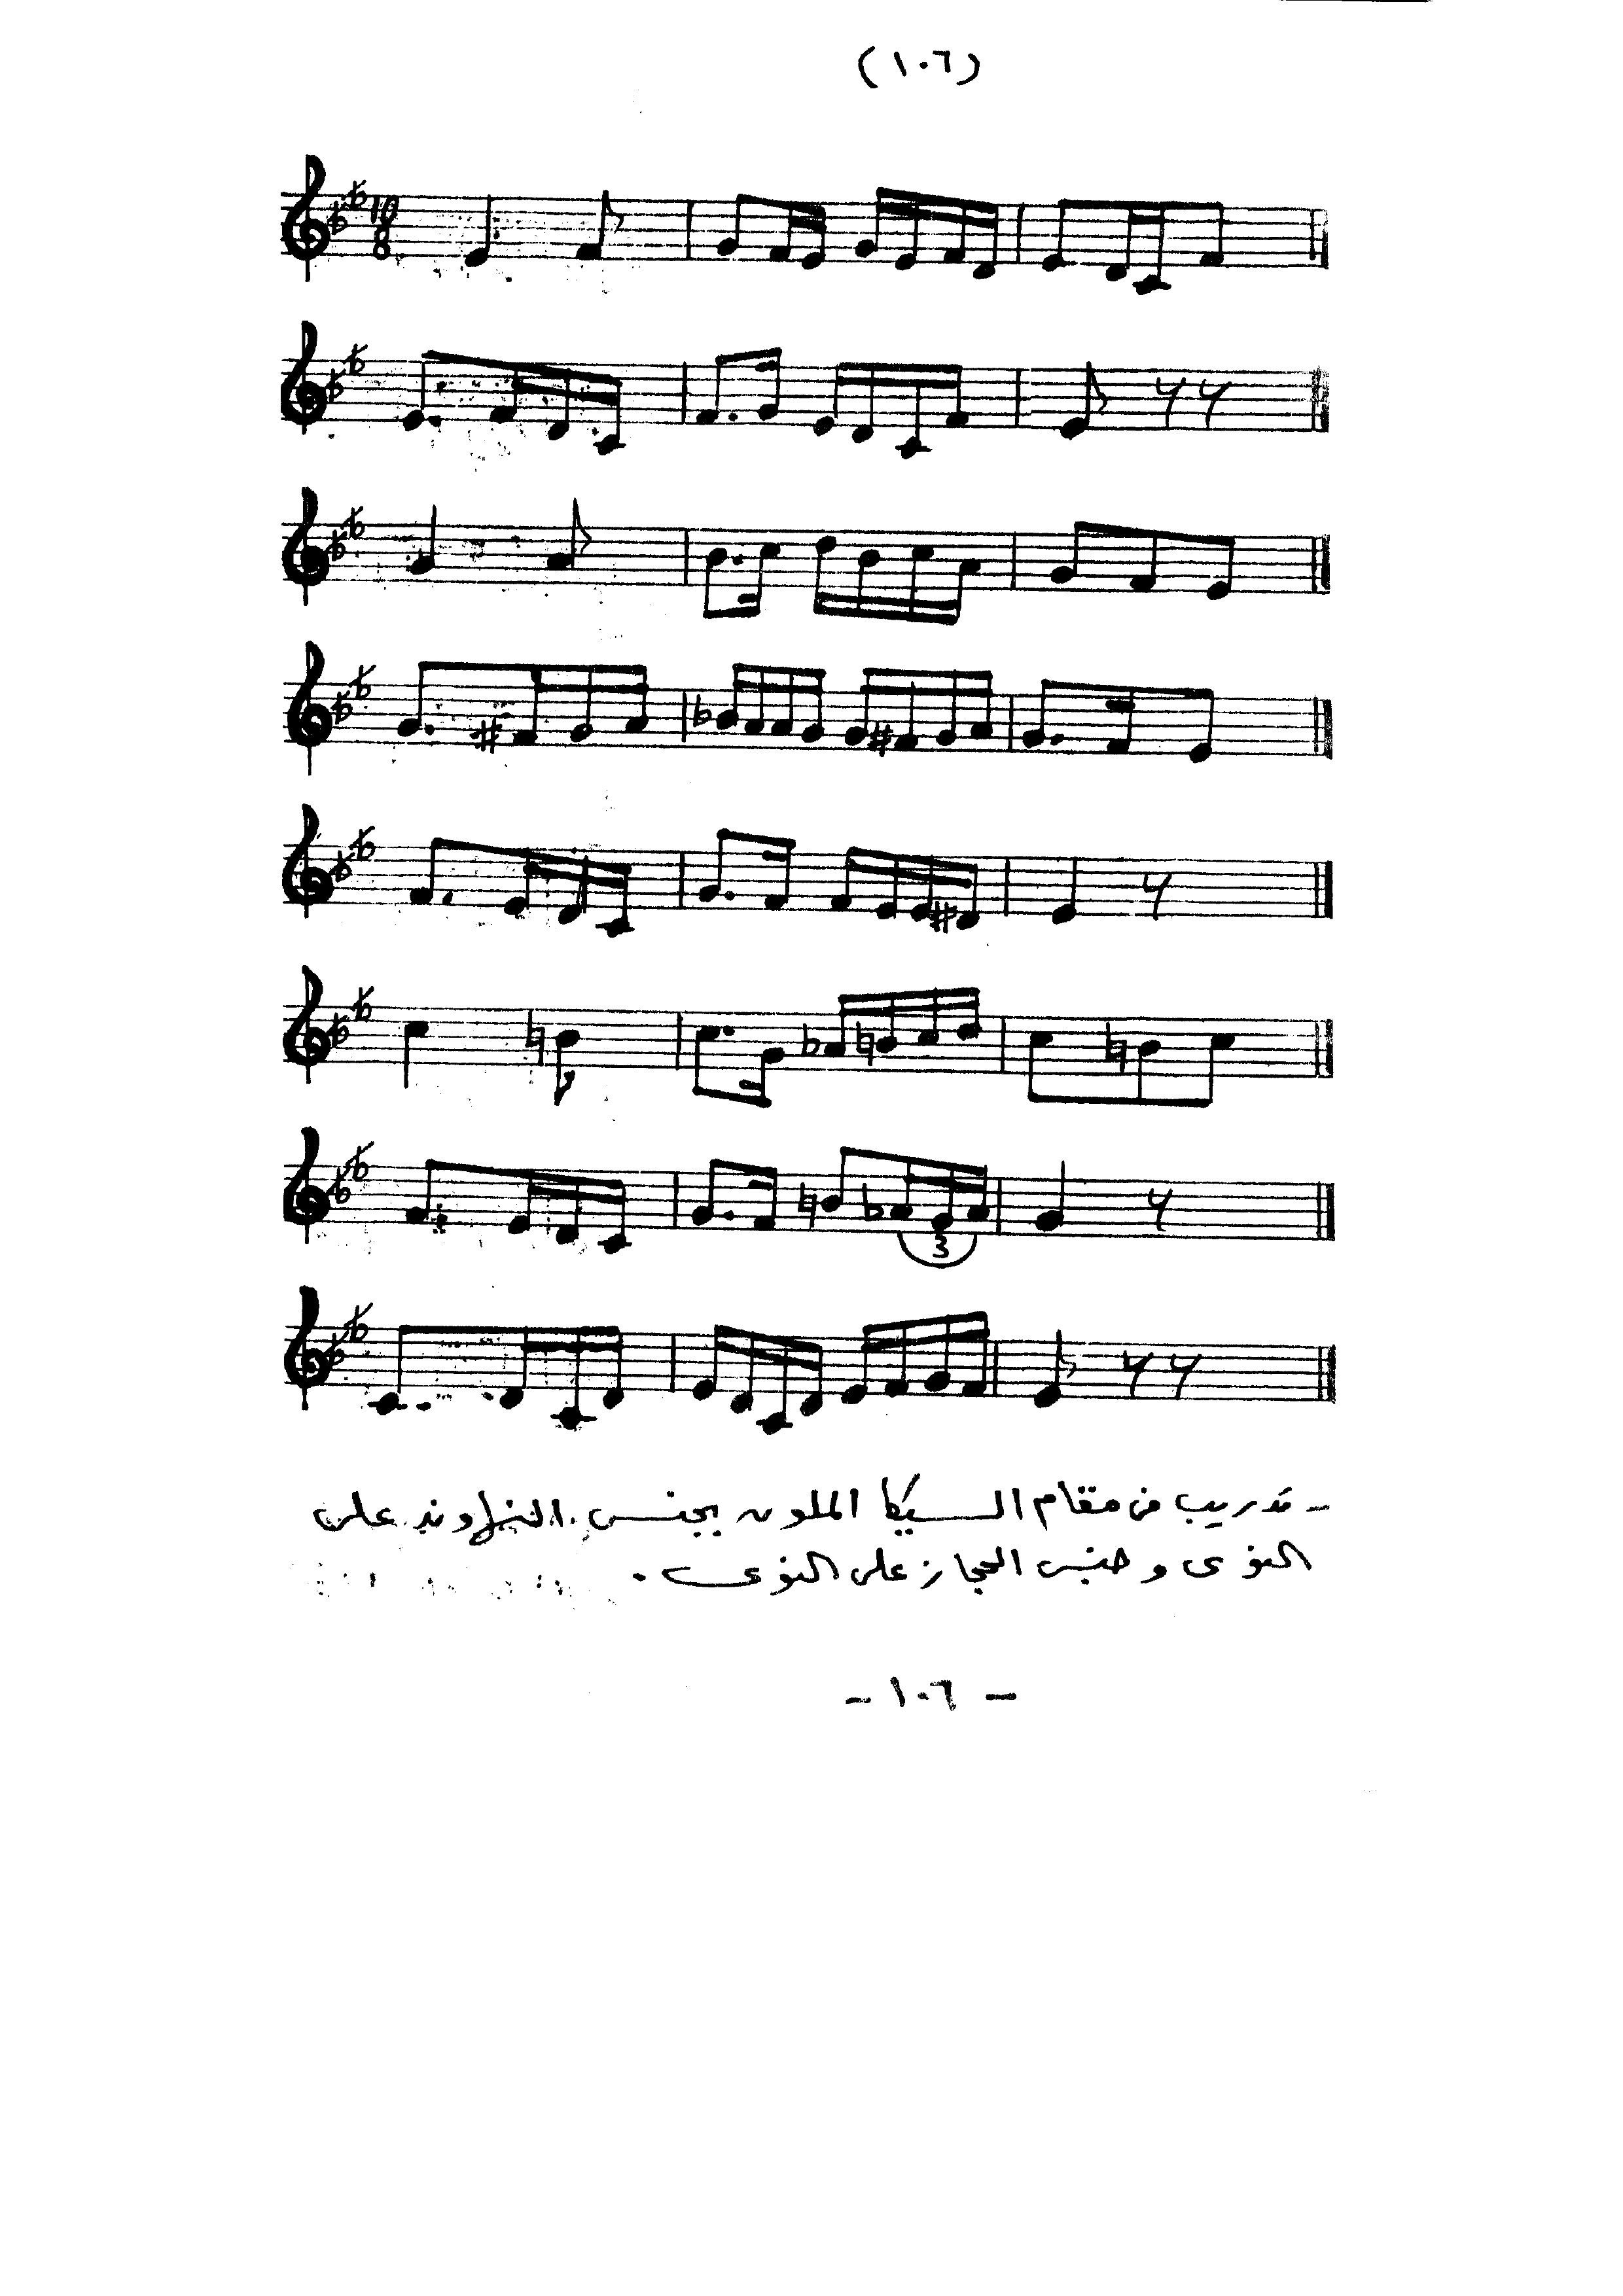 (١٠٦)
10
8
3
- تدريب من مقام السيكا الملون بجنس النهاوند على
النوى وجنس الحجاز على النوى .
- ١٠٦ -